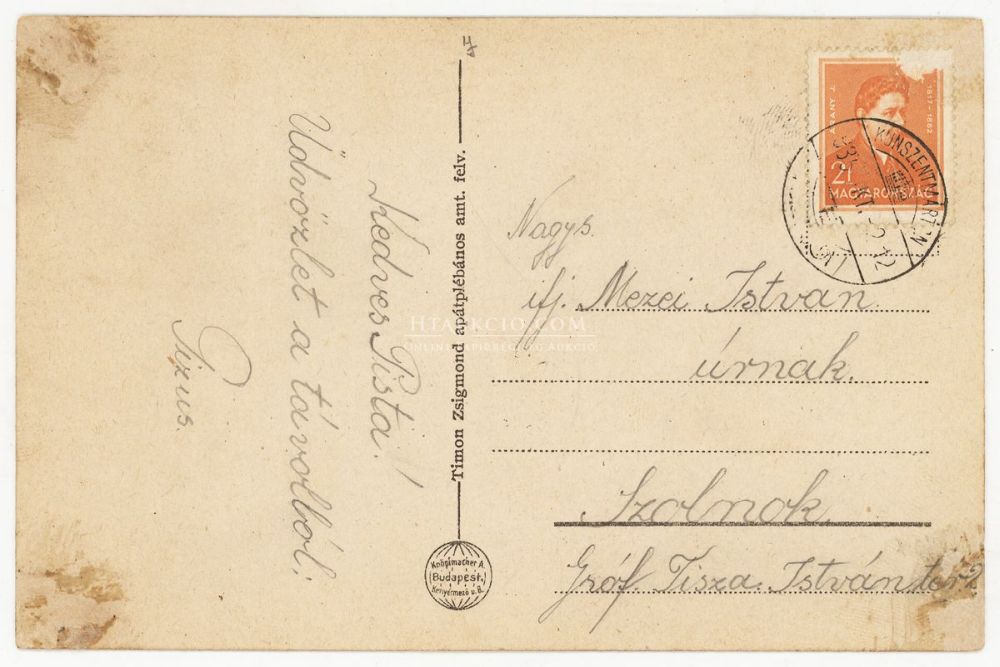 Kedves Pista!
Üdvözlet a távolból:
Pizus.
Timon Zsigmond apátplébános amt. felv.
Knöpfmacher A.
Budapest.
Kenyérmező u. 8.
J. ARANY
1817-1882
2f
MAGYARORSZÁG
KUNSZENTMÁRTON
Nagys.
ifj. Mezei István
úrnak.
Szolnok
Gróf Tisza István tér 2
HTAUKCIO.COM
ONLINE PAPÍRRÉGISÉG AUKCIÓ